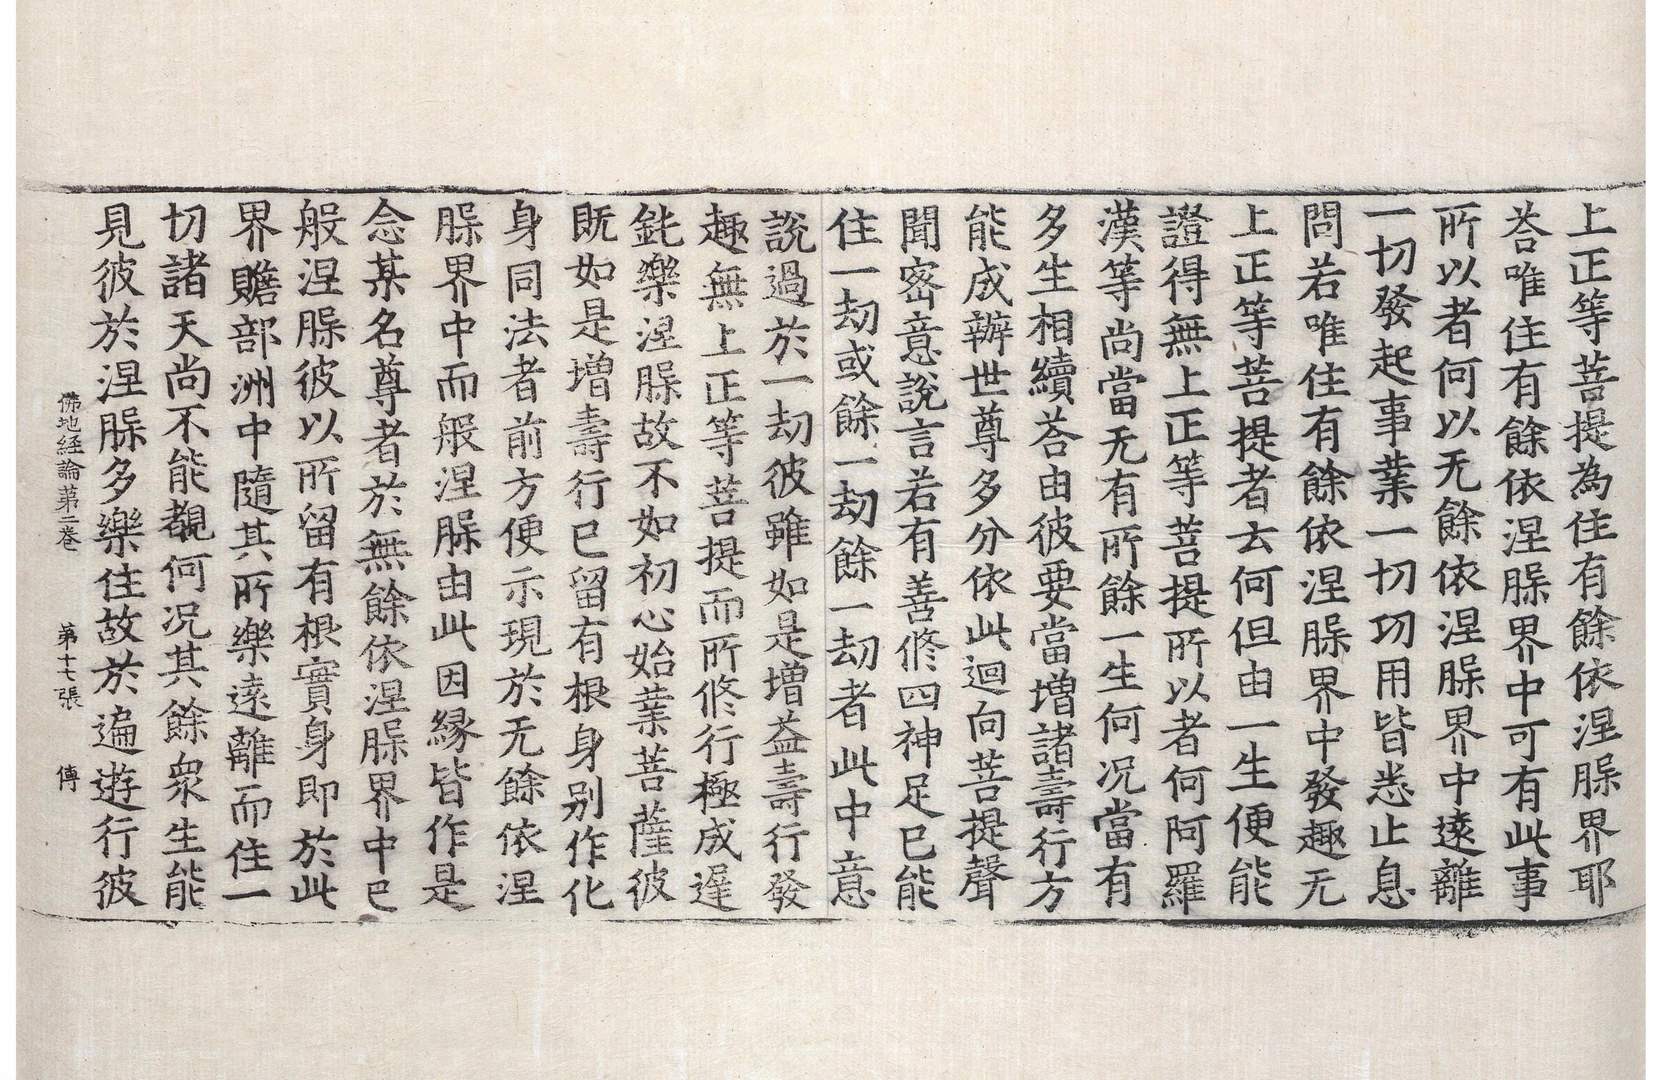 上正等菩提為住有餘依涅槃界耶
荅唯住有餘依涅槃界中可有此事
所以者何以无餘依涅槃界中遠離
一切發起事業一切功用皆悉止息
問若唯住有餘依涅槃界中發趣无
上正等菩提者云何但由一生便能
證得無上正等菩提所以者何阿羅
漢等尚當无有所餘一生何况當有
多生相續荅由彼要當增諸壽行方
能成辦世尊多分依此迴向菩提聲
聞密意說言若有善修四神足已能
住一劫或餘一劫餘一劫者此中意
說過於一劫彼雖如是增益壽行發
趣無上正等菩提而所修行極成遲
鈍樂涅槃故不如初心始業菩薩彼
既如是增壽行已留有根身別作化
身同法者前方便示現於无餘依涅
槃界中而般涅槃由此因緣皆作是
念某名尊者於無餘依涅槃界中已
般涅槃彼以所留有根實身即於此
界贍部洲中隨其所樂遠離而住一
切諸天尚不能覩何况其餘衆生能
見彼於涅槃多樂住故於遍遊行彼
佛地經論第二卷　第十七張　傳